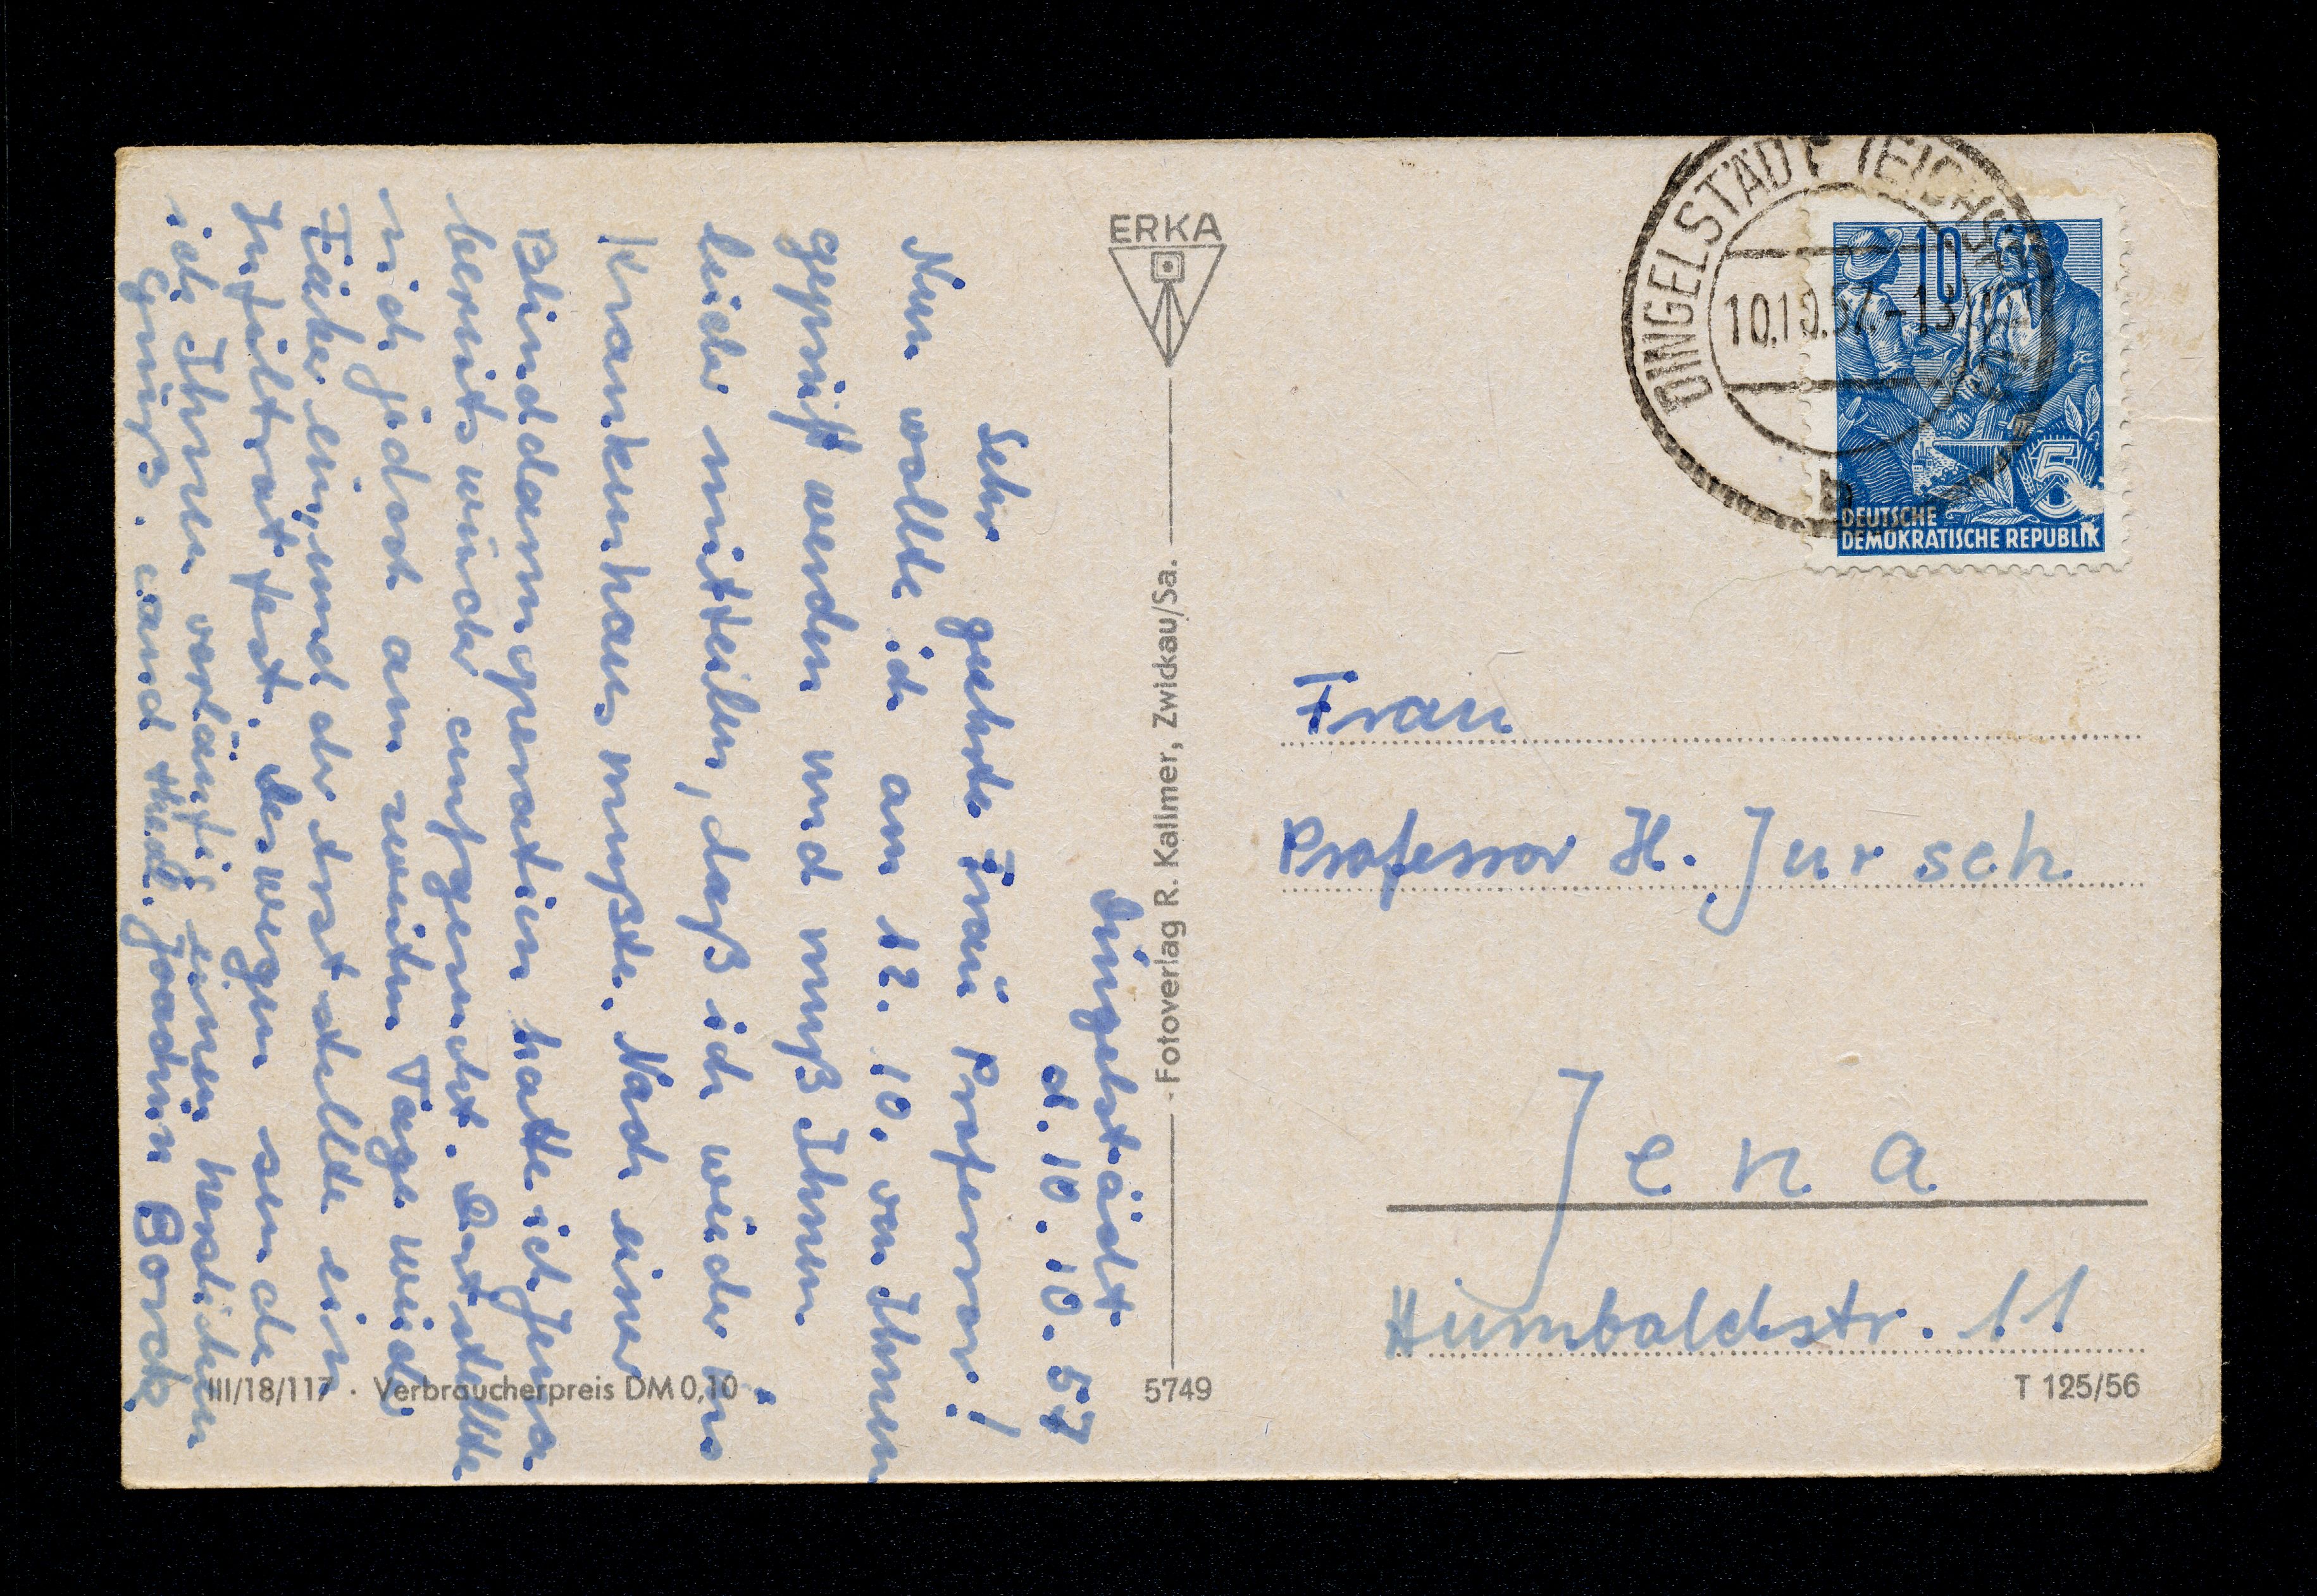 Dingelstädt
d. 10. 10. 57
Sehr geehrte Frau Professor!
Nun wollte ich am 12. 10. von Ihnen
geprüft werden und muß Ihnen
leider mitteilen, daß ich wieder ins
Krankenhaus mußte. Nach einer
Blinddarmoperation hatte ich Jena
bereits wieder aufgesucht. Es stellte
sich jedoch am zweiten Tage wieder
Fieber ein, und der Arzt stellte ein
Infiltrat fest. Deswegen sende
ich Ihnen vorläufig einen herzlichen
Gruß. cand theol. Joachim Borck
ERKA
Fotoverlag R. Kallmer, Zwickau/Sa.
III/18/117 · Verbraucherpreis DM 0,10
5749
DINGELSTÄDT (EICHSFELD)
10.10.57.-13
10
5
DEUTSCHE
DEMOKRATISCHE REPUBLIK
Frau
Professor H. Jursch
Jena
Humboldtstr. 11
T 125/56